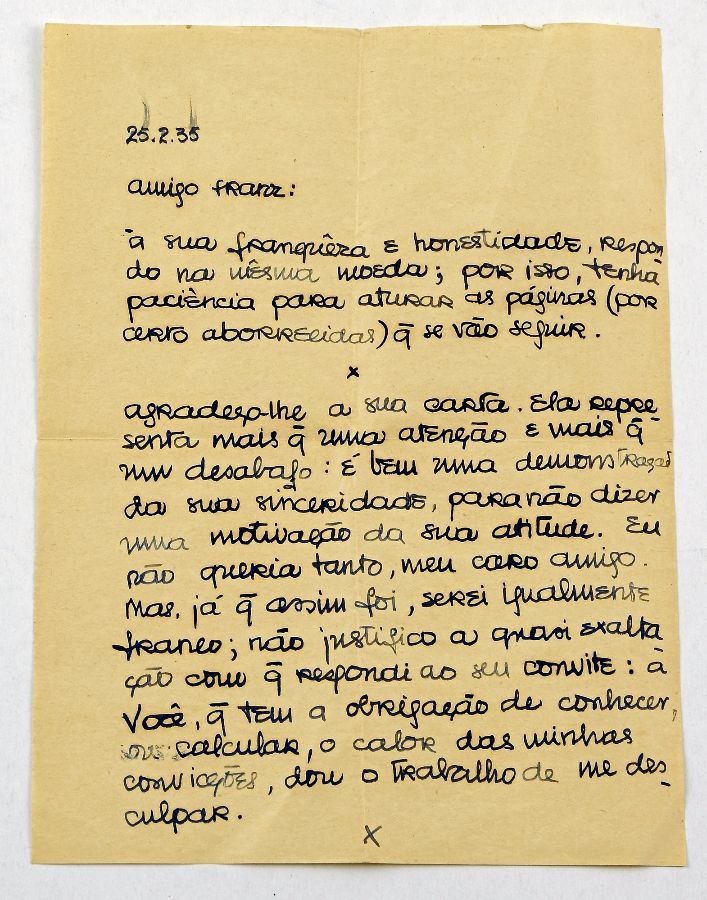 25.2.35
amigo franz:
à sua franquêza e honestidade, respon
do na mêsma moeda; por isso, tenha
paciência para aturar as páginas (por
certo aborrecidas) q̃ se vão seguir.
x
agradeço-lhe a sua carta. Ela repre
senta mais q̃ uma atenção e mais q̃
um desabafo: É bem uma demonstração
da sua sinceridade, para não dizer
uma motivação da sua atitude. Eu
não queria tanto, meu caro amigo.
Mas, já q̃ assim foi, serei igualmente
franco; não justifico a quasi exalta
ção com q̃ respondi ao seu convite: à
Você, q̃ tem a obrigação de conhecer,
ou calcular, o calor das minhas
convicções, dou o trabalho de me des-
culpar.
x